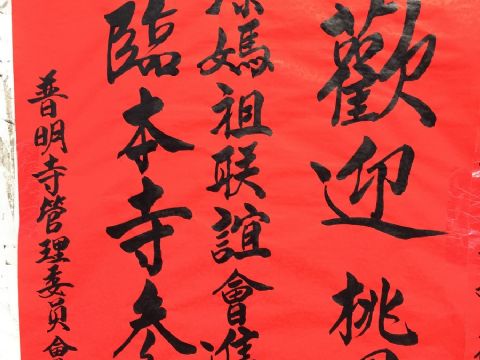 歡迎桃
媽祖联誼會進
臨本寺参
普明寺管理委員會